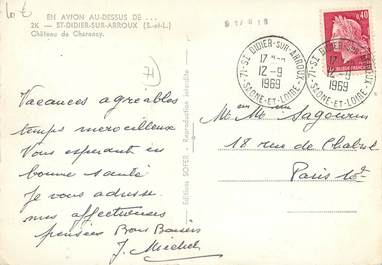 10€
EN AVION AU-DESSUS DE ...
2K — ST-DIDIER-SUR-ARROUX (S.-et-L.)
Château de Charency.
71
Vacances agréables
temps merveilleux
Vous espérant en
bonne santé
Je vous adresse
mes affectueuses
pensées Bons Baisers
J. Michel
Editions SOFER - Reproduction interdite
71-ST DIDIER-SUR-ARROUX
12-9
1969
SAONE-ET-LOIRE
71-ST DIDIER-SUR-ARROUX
12-9
1969
SAONE-ET-LOIRE
0,40
REPUBLIQUE FRANCAISE
Me Mr Sagourin
18 rue de Chabrol
Paris 10e